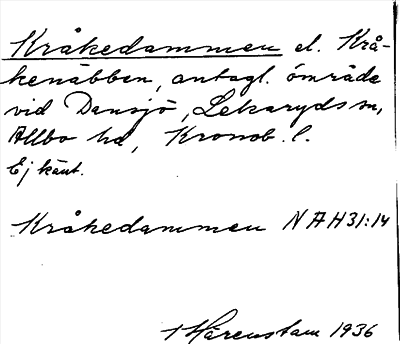 Kråkedammen el. Krå-
kenäbben, antagl. område
vid Dansjö, Lekaryds sn,
Allbo hd, Kronob. l.
Ej känt.
Kråkedammen NAH31:14
Härenstam 1936